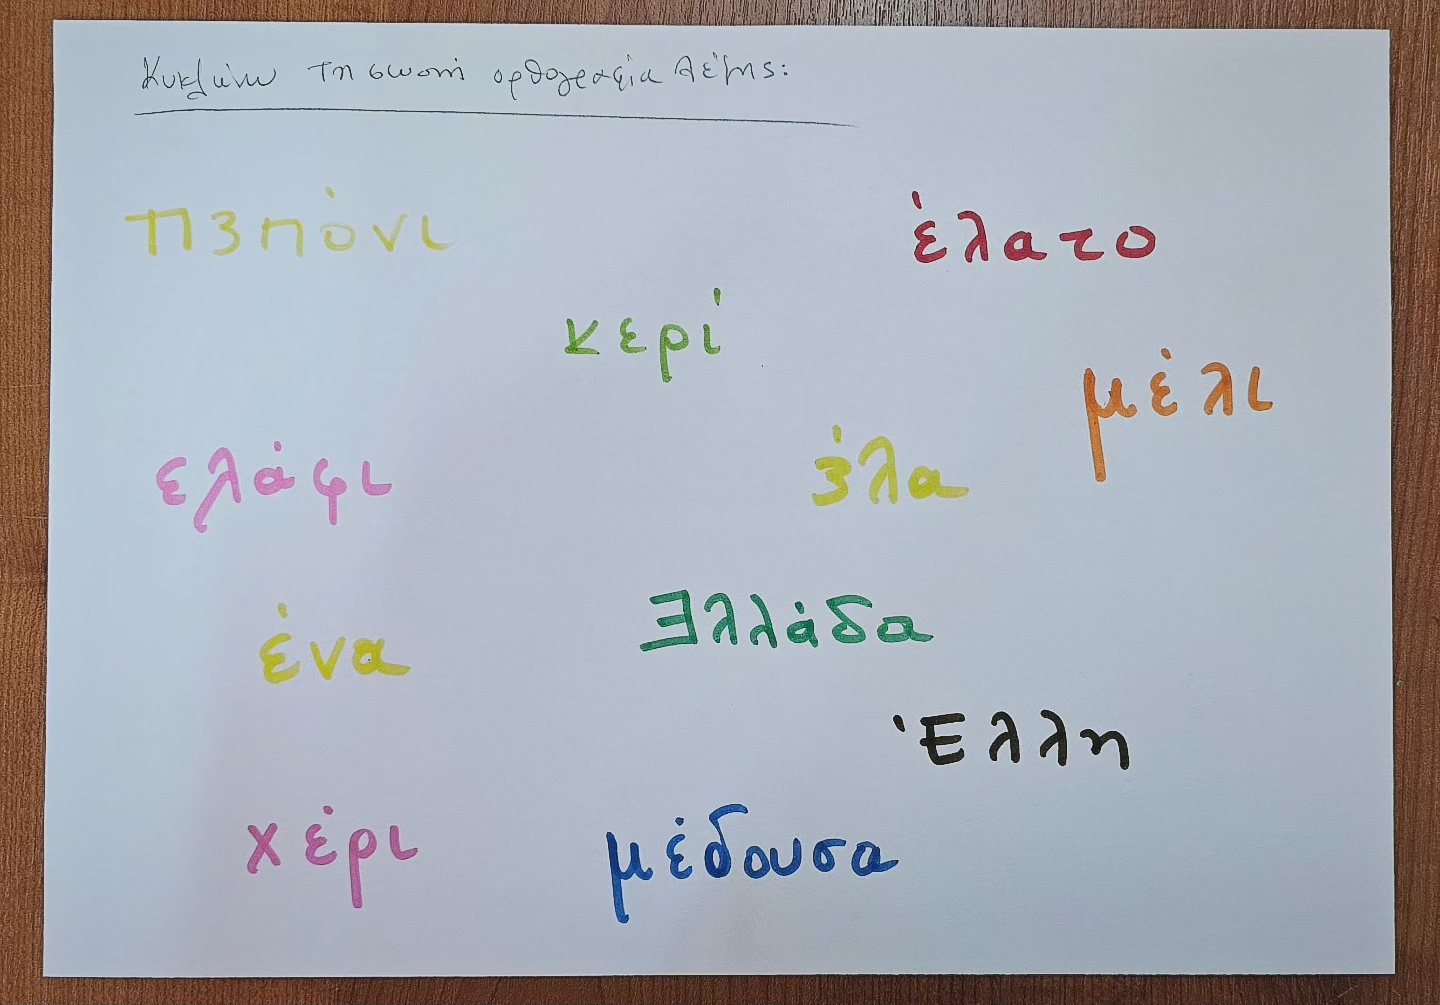 Κυκλώνω τη σωστή ορθογραφία λέξης:
π 3 πόνι
έλατο
κερί
μέλι
ελάφι
3́λα
Ǝλλάδα
ένα
Έλλη
χέρι
μέδουσα